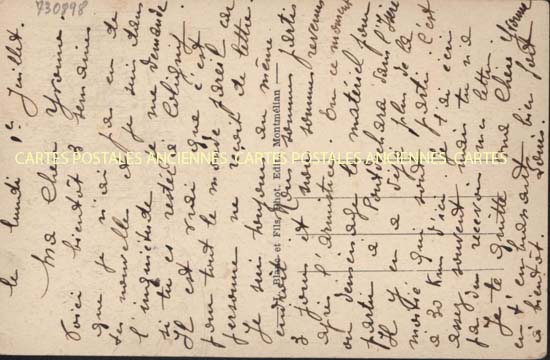 730898
le lundi 1er Juillet.
Ma Chère Yvonne
Voici bientôt 3 semaines
que je n'ai pas eu de
tes nouvelles et je suis dans
l'inquiétude je me demande
si tu es restée à Coligny
Il est vrai que c'est
pour tout le monde pareil car
personne ne reçoit de lettre.
Je suis toujours au même
endroit. Nous sommes partis
3 jours et nous sommes revenus
après l'armistice. En ce moment
on démonte le matériel pour
partir à Pontcharra dans l'Isère
Il y en a déjà plus de la
moitié qui sont partis c'est
à 30 Km d'ici. Je t'ai écrit
assez souvent mais tu n'a
pas du recevoir mes lettres.
Je te quitte ma Chère Yvonne
en t'embrassant bien fort
à bientôt. Louis.
Blanc et Fils, Phot. Edit. Montmélian
CARTES POSTALES ANCIENNES CARTES POSTALES ANCIENNES CARTES POSTALES ANCIENNES